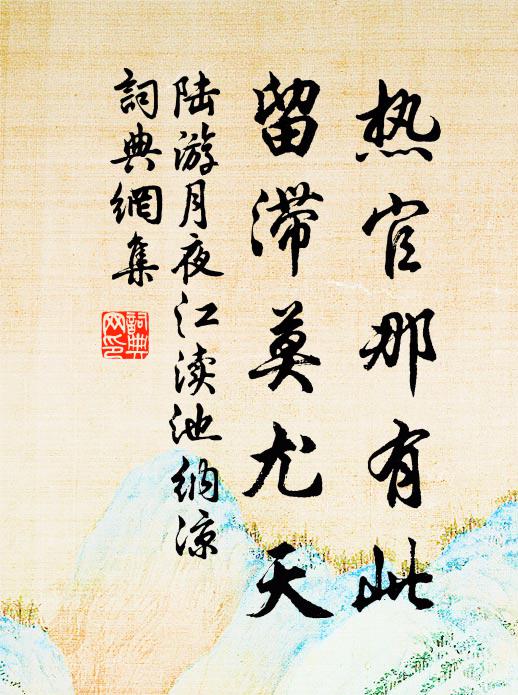 热官那有此
留滞莫尤天
陆游月夜江渎池纳凉
词典網集
詞典网印